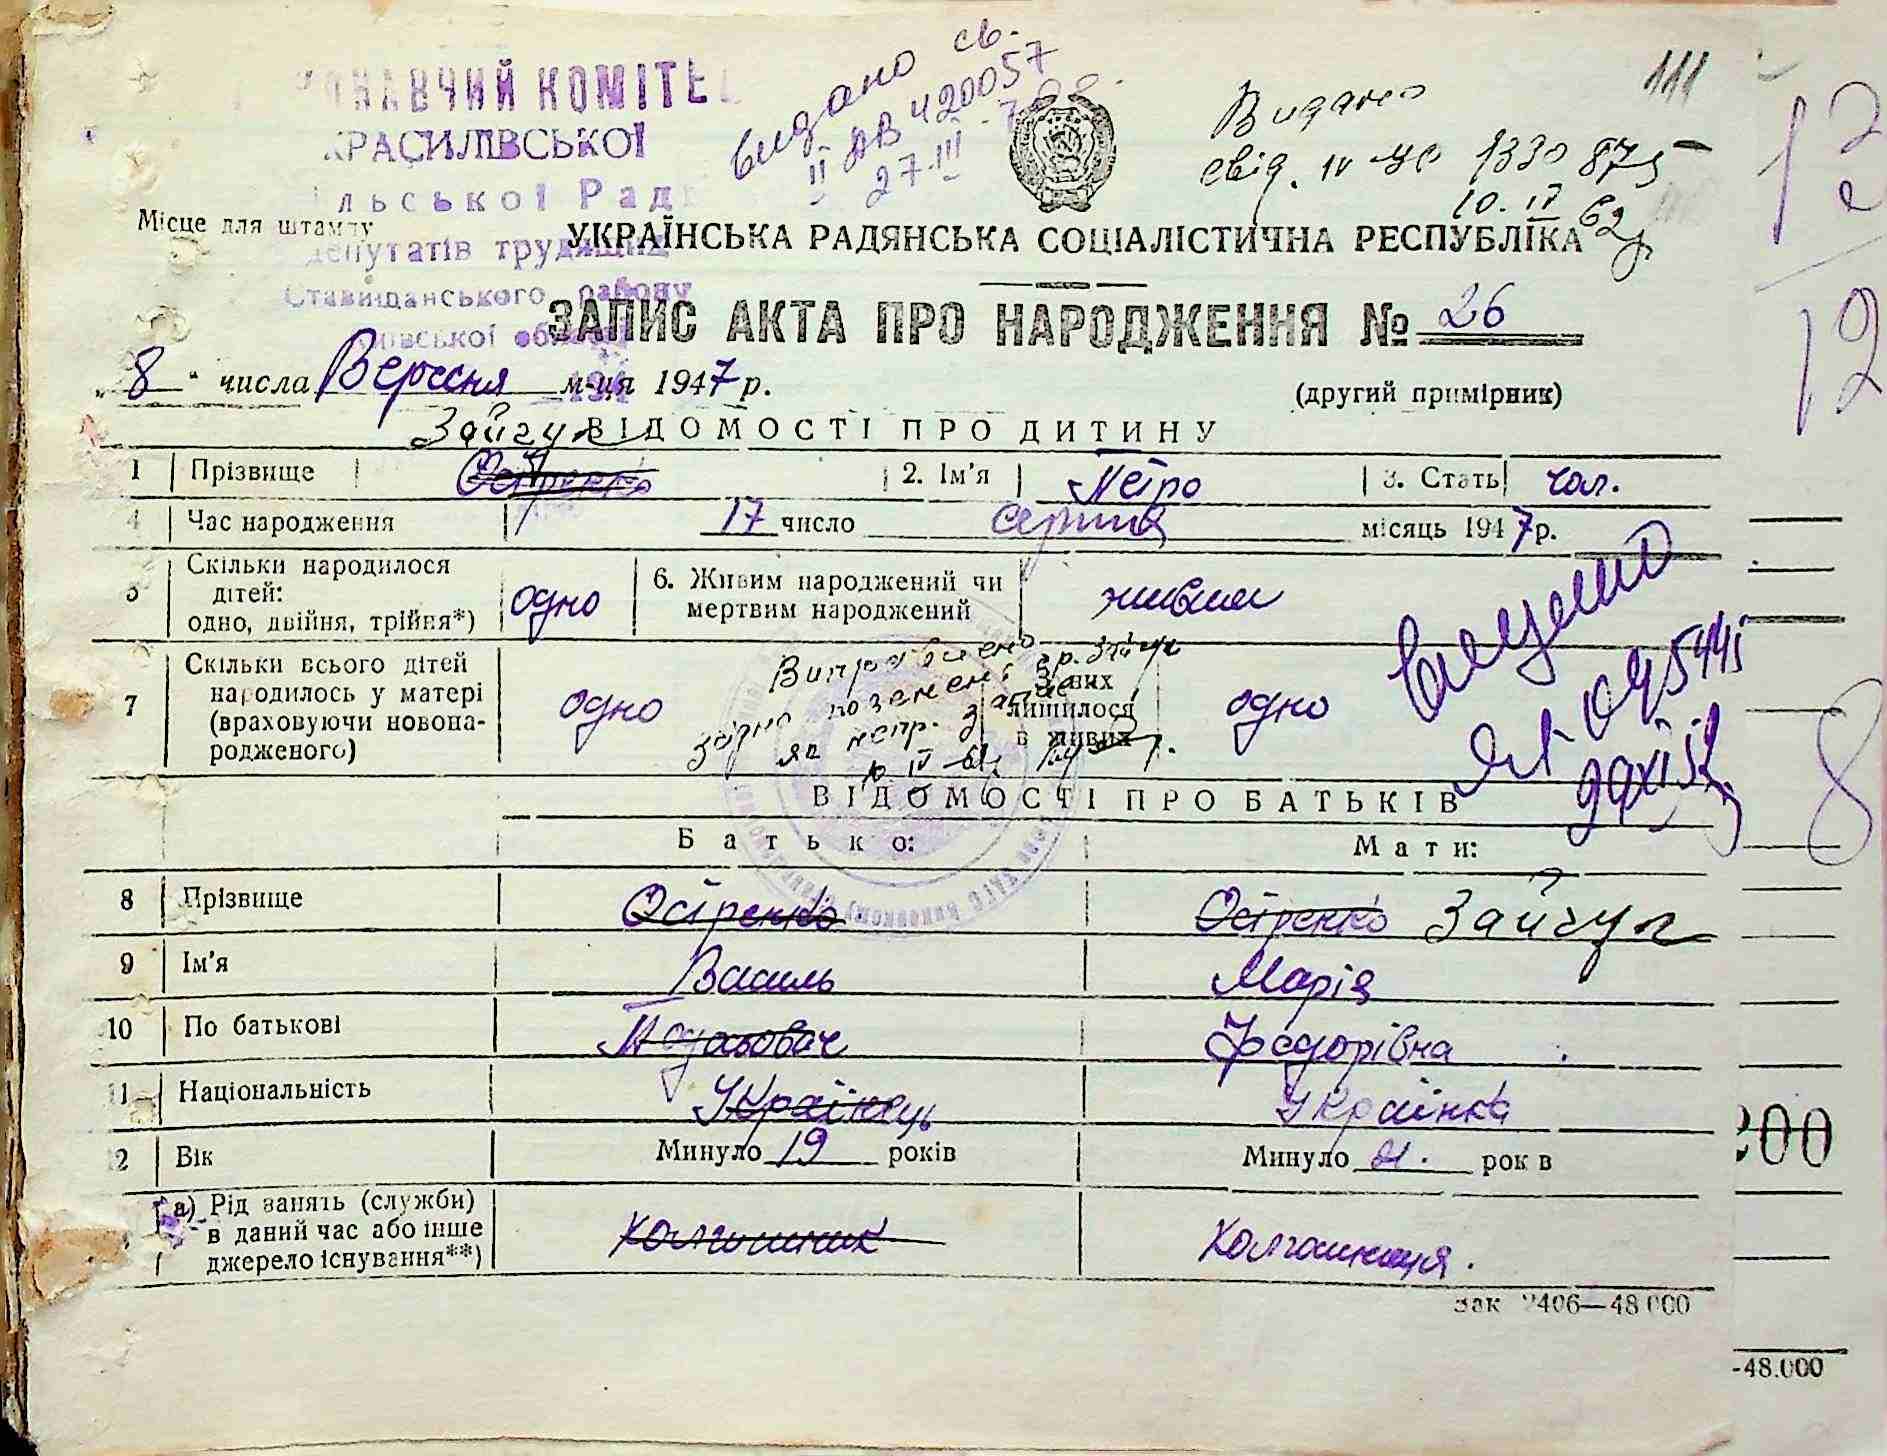 КОНАВЧИЙ КОМІТЕ
КРАСИЛІВСЬКОЇ
ЛЬСЬКОЇ РАД
депутатів трудящих
Ставищанського району
ївської обл
194
видано св.
II АВ 420057
27.III
111
Видано
свід. IV УС 1330875
10.IV 62р
12
12
Місце для штампу
УКРАЇНСЬКА РАДЯНСЬКА СОЦІАЛІСТИЧНА РЕСПУБЛІКА
ЗАПИС АКТА ПРО НАРОДЖЕННЯ № 26
„8" числа Вересня м-ця 1947 р.
(другий примірник)
ВІДОМОСТІ ПРО ДИТИНУ
Зайчук
1 Прізвище Остренко 2. Ім'я Петро 3. Стать чол.
4 Час народження 17 число серпня місяць 1947 р.
5 Скільки народилося дітей: одно, двійня, трійня*) одно 6. Живим народжений чи мертвим народжений живим
7 Скільки всього дітей народилось у матері (враховуючи новонародженого) одно З них лишилося в живих одно
Виправлено
згідно
10.IV
8
ВІДОМОСТІ ПРО БАТЬКІВ
Батько: Мати:
8 Прізвище Остренко Остренко Зайчук
9 Ім'я Василь Марія
10 По батькові Федорівна
11 Національність Українець Українка
12 Вік Минуло 19 років Минуло 21. рок в
а) Рід занять (служби) в даний час або інше джерело існування**) Колгоспник Колгоспниця.
200
Зак 2406—48 000
-48.000